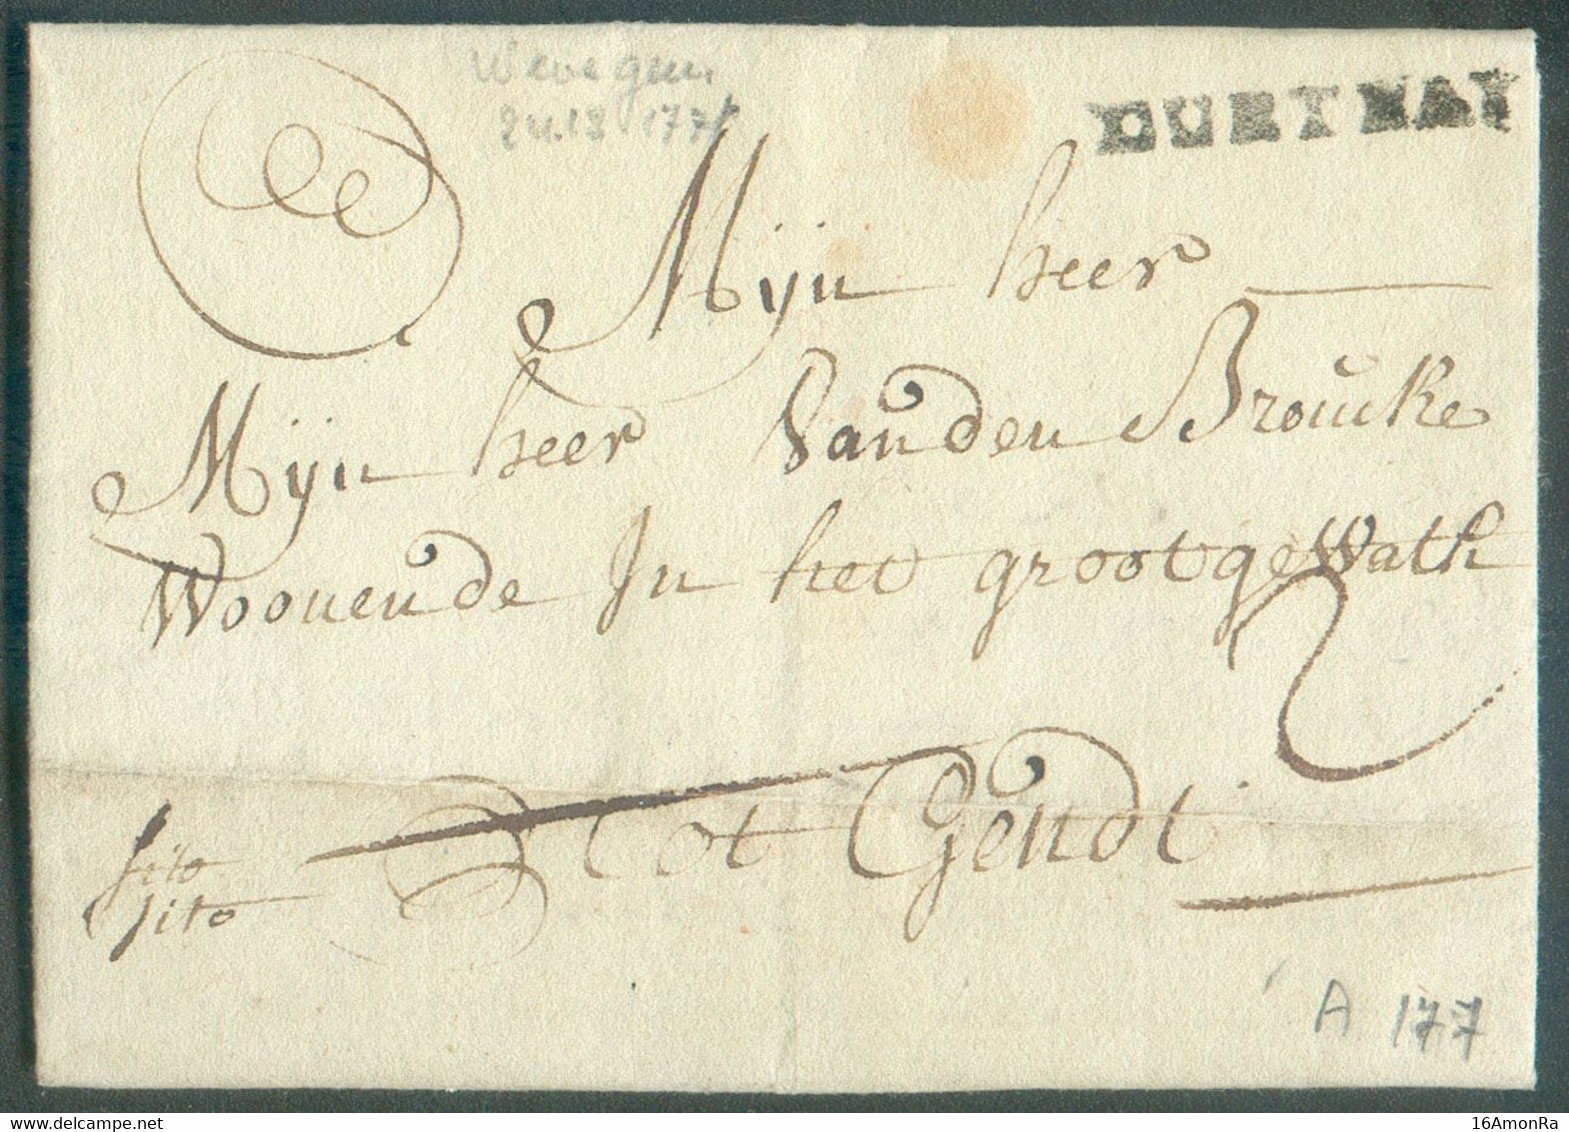 Wevegem
24.12 177
COURTRAI
Mijn heer
Mijn heer Vanden Broucke
Woonende In het groot gewath
2
tot Gendt
Sito
Sito
A 177
16AmonRa